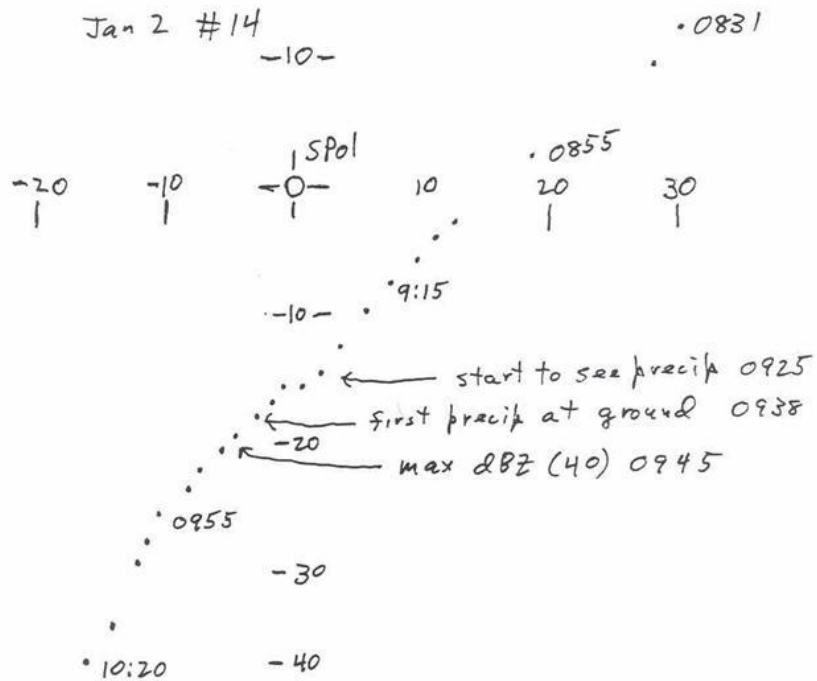 Jan 2 #14
·0831
-10-
SPol
·0855
-20 -10 -0- 10 20 30
9:15
-10-
start to see precip 0925
first precip at ground 0938
-20
max dBZ (40) 0945
0955
-30
10:20
-40